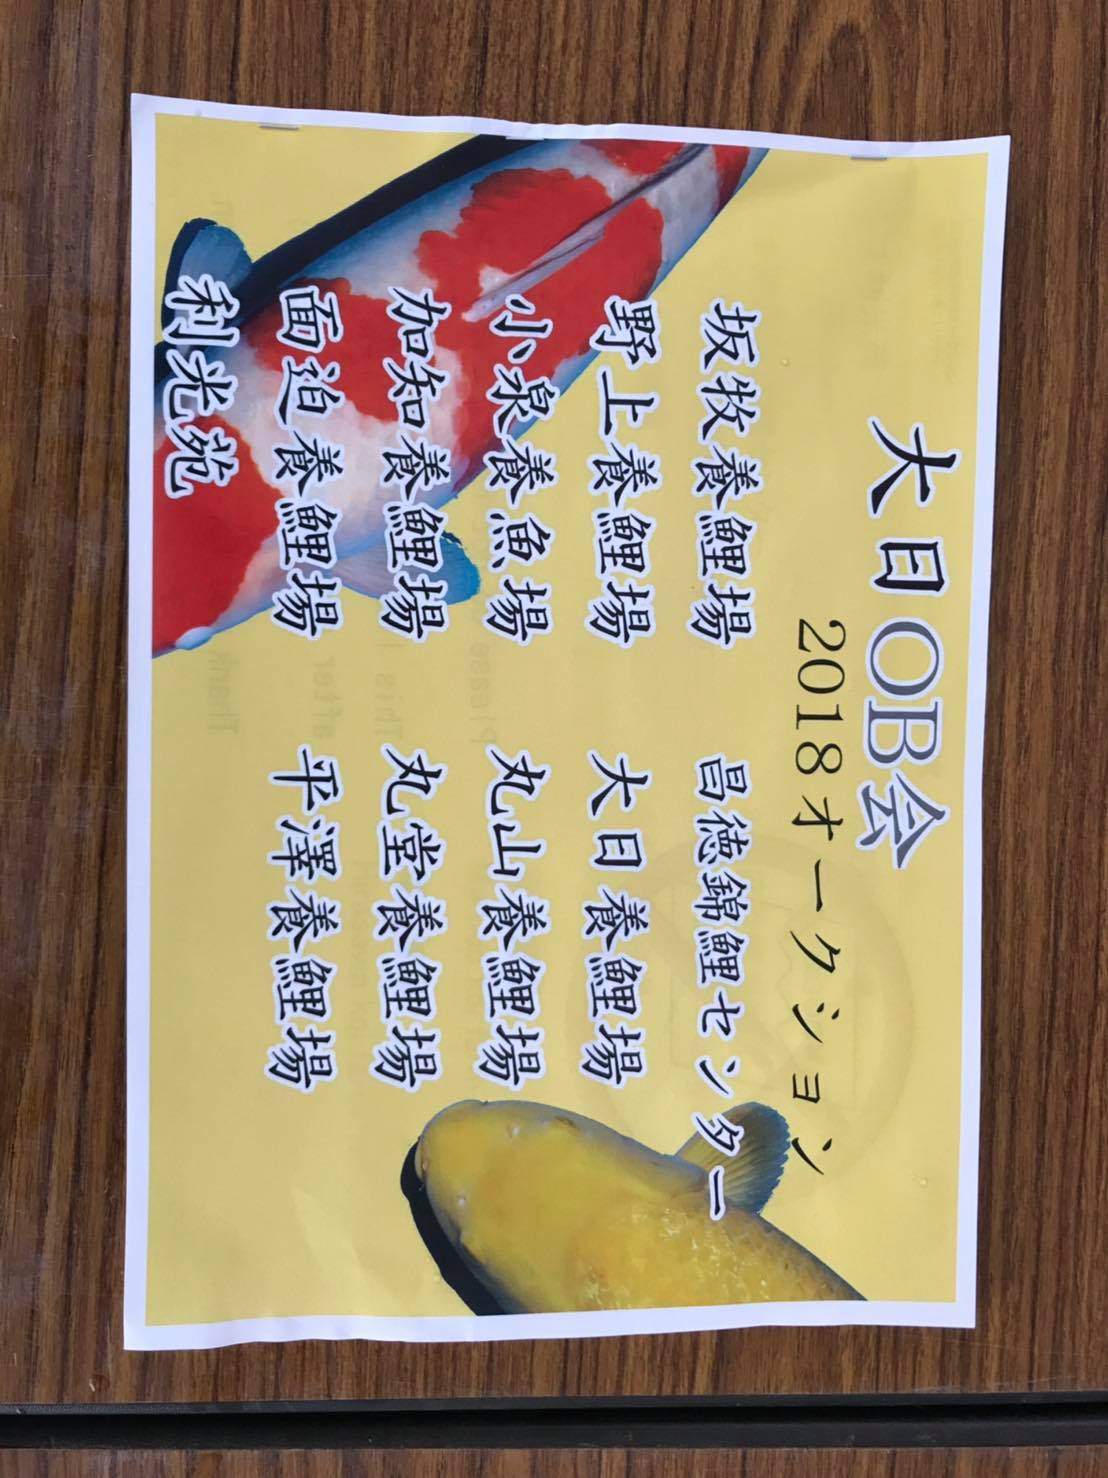 大日OB会
2018オークション
坂牧養鯉場
昌徳錦鯉センター
野上養鯉場
大日養鯉場
小泉養魚場
丸山養鯉場
加知養鯉場
丸堂養鯉場
面迫養鯉場
平澤養鯉場
利光苑